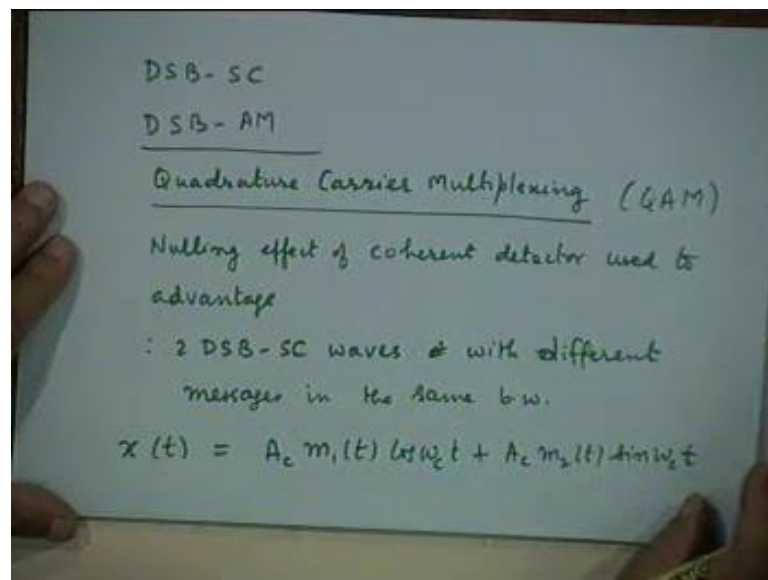 DSB-SC
DSB-AM
Quadrature Carrier Multiplexing (QAM)
Nulling effect of coherent detector used to
advantage
: 2 DSB-SC waves with different
messages in the same b.w.
x(t) = A_c m_1(t) cos ω_c t + A_c m_2(t) sin ω_c t